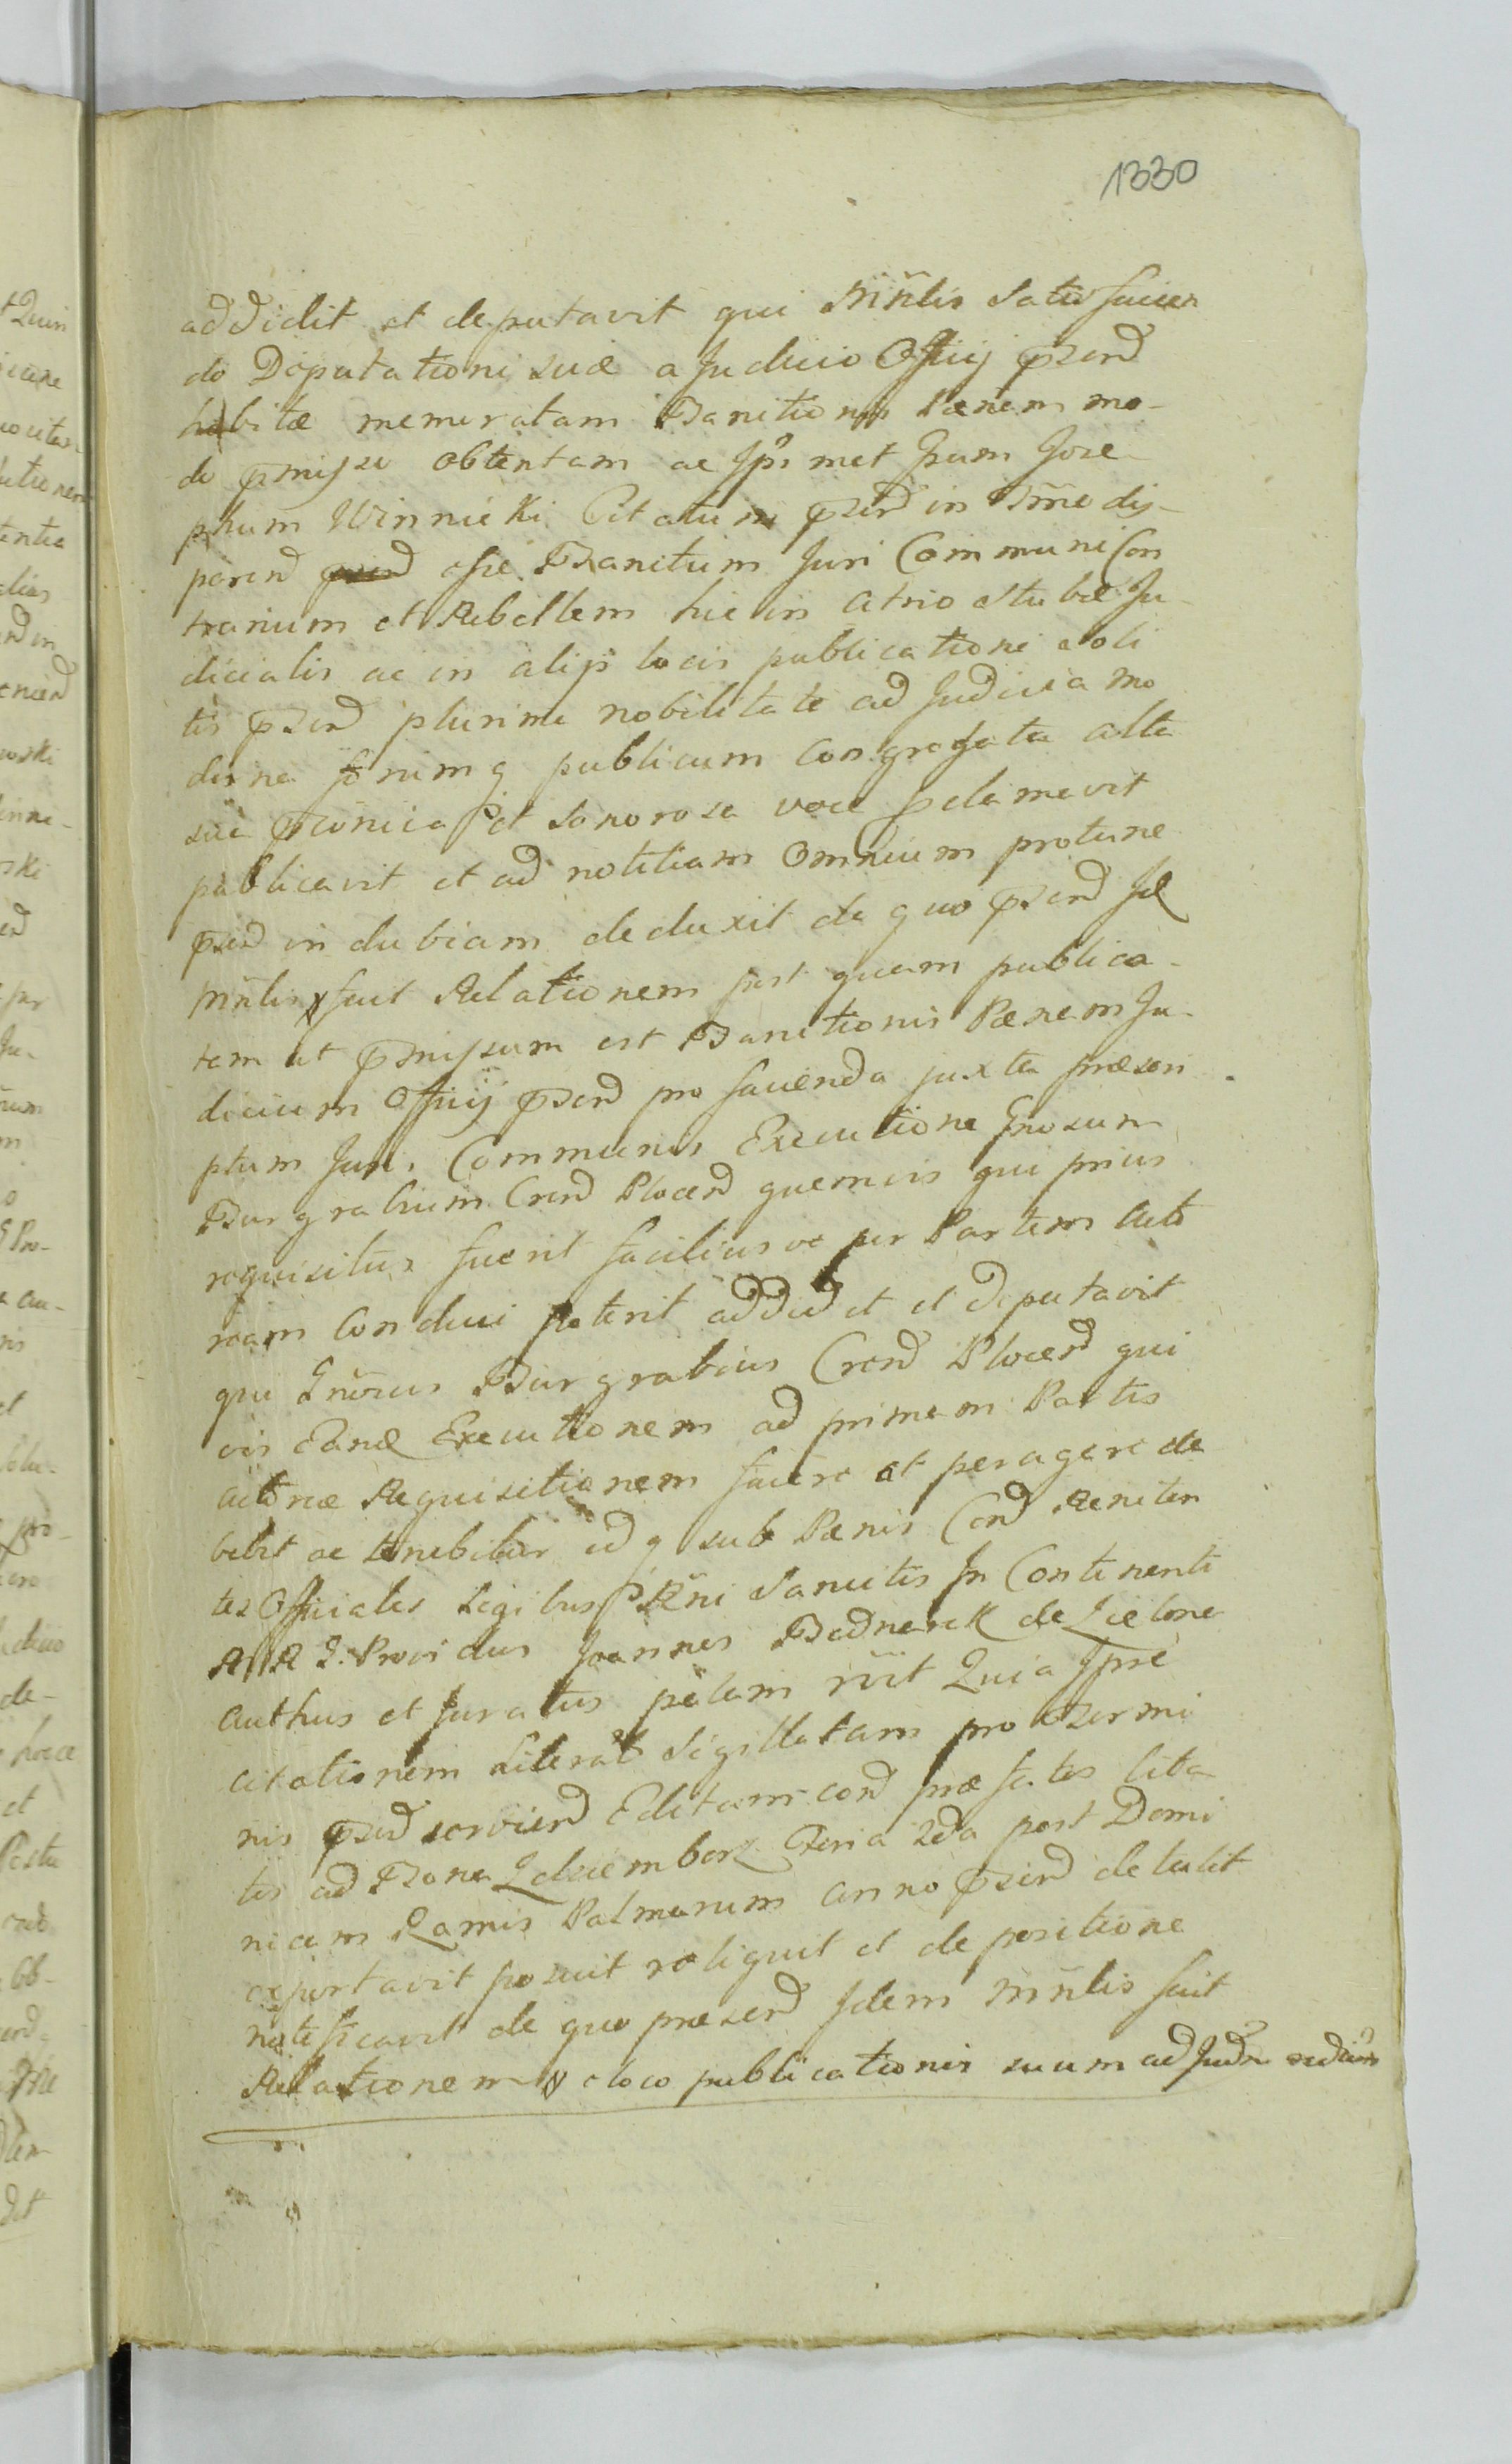 1330
addidit et deputavit qui Mnlis Satisfacien
do Deputationi suæ a Judicio Officij præsend
habitæ memoratam Banitionis Pænam mo-
do præmisso obtentam ac Ipsmet Gsum Jose
phum Winnicki Citatum præsend in Tmo dis-
parend esse Banitum Juri Communi Con
trarium et Rebellem hic in atrio Stubæ Ju
dicialis ac in alijs locis publicationi soli
tis præsend plurima nobilitate ad Judicia mo
derna forumq publicum Congregata alta
sua præconica et Sonorosa voce proclamavit
publicavit et ad notitiam Omnium protunc
præsend indubiam deduxit de quo præsend Id
Mnlis fecit Relationem post quam publica-
tam ut præmissum est Banitionis Pænam Ju-
dicium Officij præsend pro facienda juxta præscri
ptum Juris Communis Executione Gnosum
Burgrabium Crend Plocend quemvis qui prius
requisitus fuerit faciliusve per Partem Acto
ream Conduci poterit addidit et deputavit
qui Gnosus Burgrabius Crend Plocend qui
vis Eand Executionem ad primam Partis
actoreæ Requisitionem facere et peragere de
bebit ac tenebitur idq sub Pænis Cond Reniten
tes Officiales Legibus Rni Sancitis In Continenti
Providus Joannes Bednarek de Zielona
authus et Juratus palam rcit Quia Ipse
citationem Literal Sigillatam pro Termi
nis præsend servien Editam cond præfatos Cita
tos ad Bona Feria 2da post Domi
nicam Ramis Palmarum anno præsend detulit
exportavit posuit reliquit et de positione
notificavit de quo præsend Idem Mnlis fecit
Relationem e loco publicationis suum ad Judm